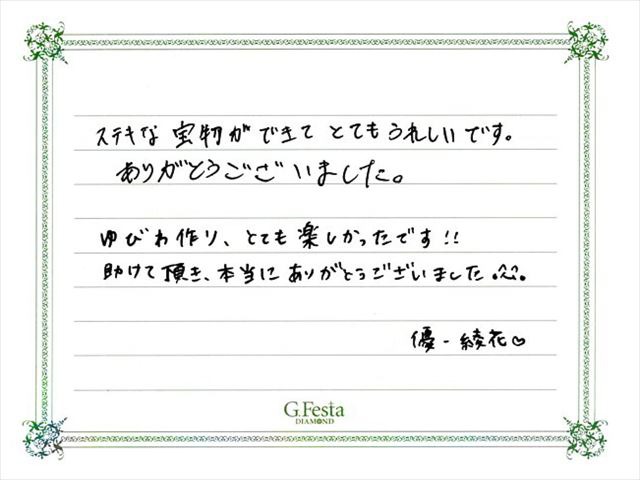 ステキな宝物ができて とてもうれしいです。
ありがとうございました。
ゆびわ作り、とても楽しかったです!!
助けて頂き、本当にありがとうございました。^^。
優一 綾花♡
G.Festa
DIAMOND